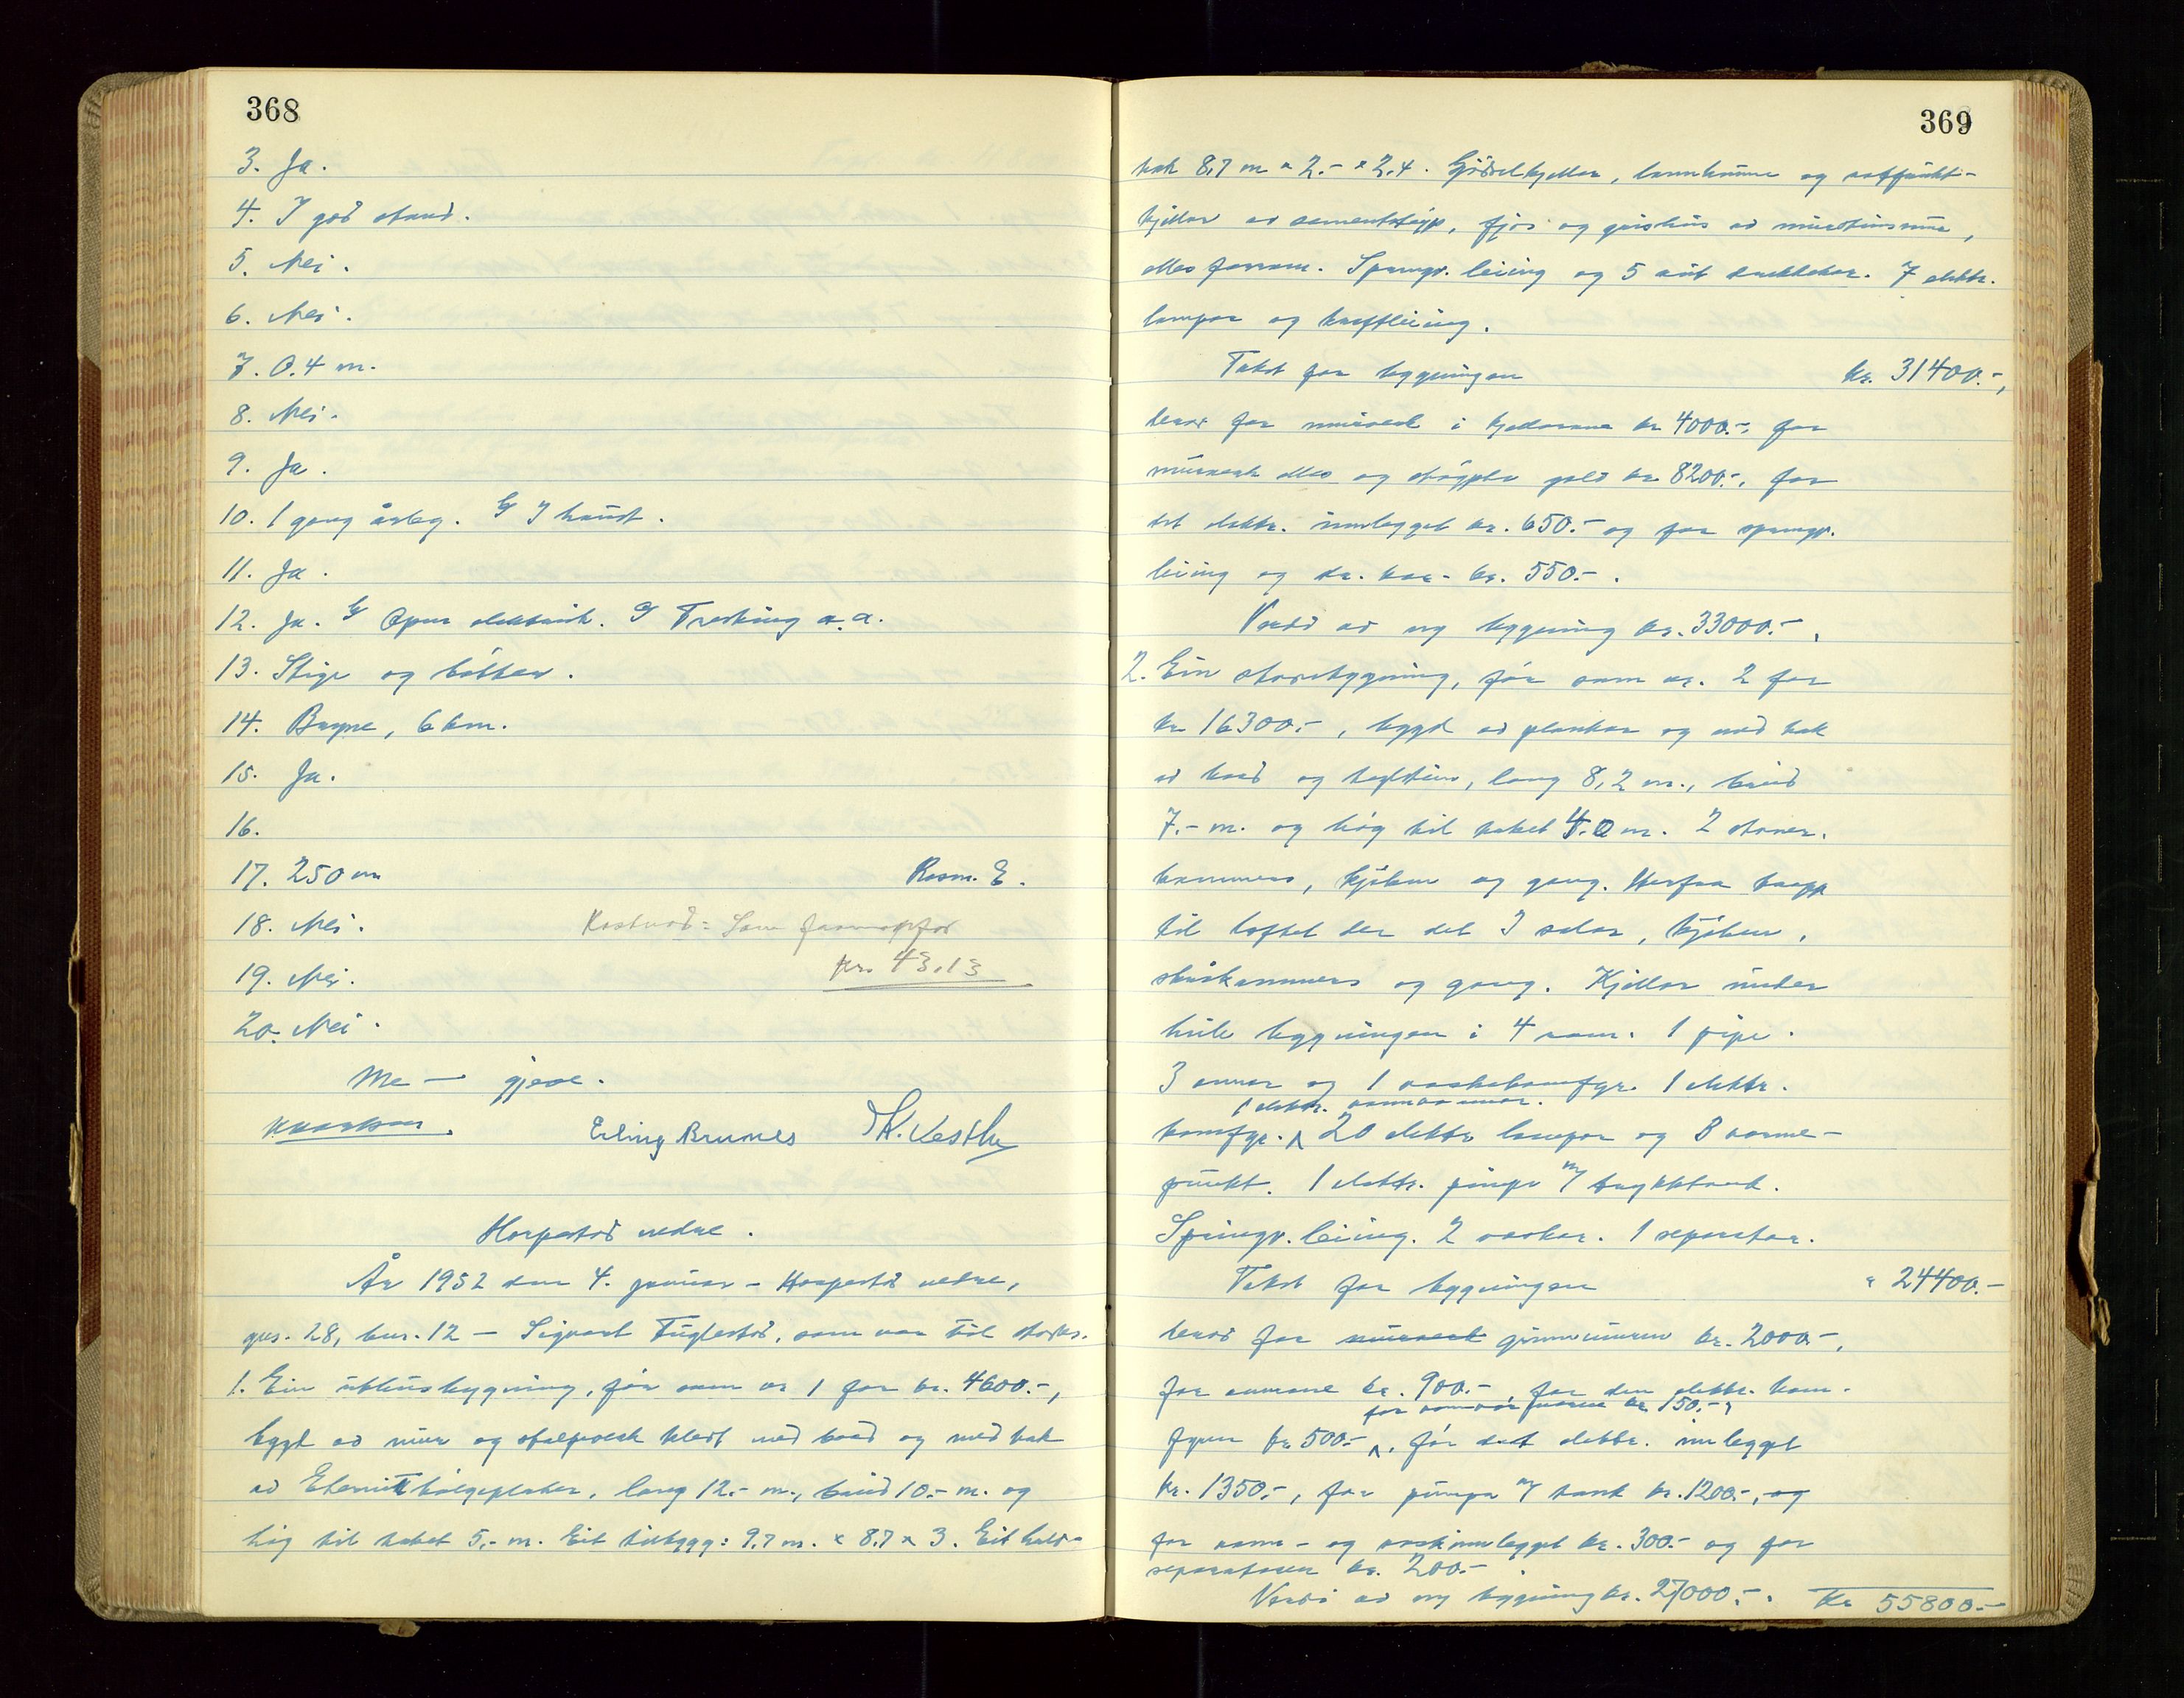 368
3. Ja.
4. I god stand.
5. Nei.
6. Nei.
7. 0.4 m.
8. Nei.
9. Ja.
10. 1 gong årleg. b/ I haust.
11. Ja.
12. Ja. b/ Open elektrisk. c/ Tresking o. a.
13. Stige og bøtter.
14. Bryne, 6 km.
15. Ja.
16.
17. 250 m Rasm. E.
18. Nei. Kostnad: Som framopfor
19. Nei. kr. 43.13
20. Nei.
Me — gjeve.
Erling Brunes
Horpestad nedre.
År 1952 den 4. januar – Horpestad nedre,
gnr. 28, bnr. 12 — Sigvart Fuglestad, som var til stades.
1. Ein uthusbygning, før som nr 1 for kr. 4600.-,
bygt av mur og stolpeverk kledt med bord og med tak
av Eternitbølgeplater, lang 12.- m., breid 10.- m. og
høg til taket 5.- m. Eit tilbygg: 9.7 m. x 8.7 x 3. Eit halv-
369
tak 8,7 m x 2.- x 2.4. Gjødselkjellar, lannkumme og saftfrukt-
kjellar av sementstøyp, fjøs og grishus av mursteinsmur,
elles forrom. Springv. leiing og 5 aut. drikkekar. 7 elektr.
lampor og kraftleiing.
Takst for bygningen kr. 31400.-,
herav for murverk i kjellarane kr 4000.-, for
murverk elles og støypte golv kr 8200.-, for
det elektr. innlegget kr. 650.- og for springv.
leiing og dr. kar. kr. 550.-.
Verdi av ny bygning kr. 33000.-.
2. Ein stovebygning, før som nr. 2 for
kr 16300.-, bygd av plankar og med tak
av bord og teglstein, lang 8,2 m., breid
7.- m. og høg til taket 4.0 m. 2 stover,
kammers, kjøken og gang. Herfra trapp
til loftet der det 3 salar, kjøken,
skåkammers og gang. Kjellar under
heile bygningen i 4 rom. 1 pipe.
3 omnar og 1 vaskekomfyr. 1 elektr.
1 elektr. vannvarmar.
komfyr. 20 elektr lampor og 8 varme-
punkt. 1 elektr. pumpe m/ trykktank.
Springv. leiing. 2 vaskar. 1 separator.
Takst for bygningen " 24400.-
herav for murverk grunnmuren kr. 2000.-,
for omnane kr. 900.-, for den elektr. kom-
for vannvarmaren kr. 150.-,
fyren kr 500.-, for det elektr. innlegget
kr. 1350.-, for pumpa m/ tank kr. 1200.-, og
for vann- og vaskinnlegget kr. 300.- og for
separatoren kr. 200.-.
Verdi av ny bygning kr. 27000.-. Kr 55800.-